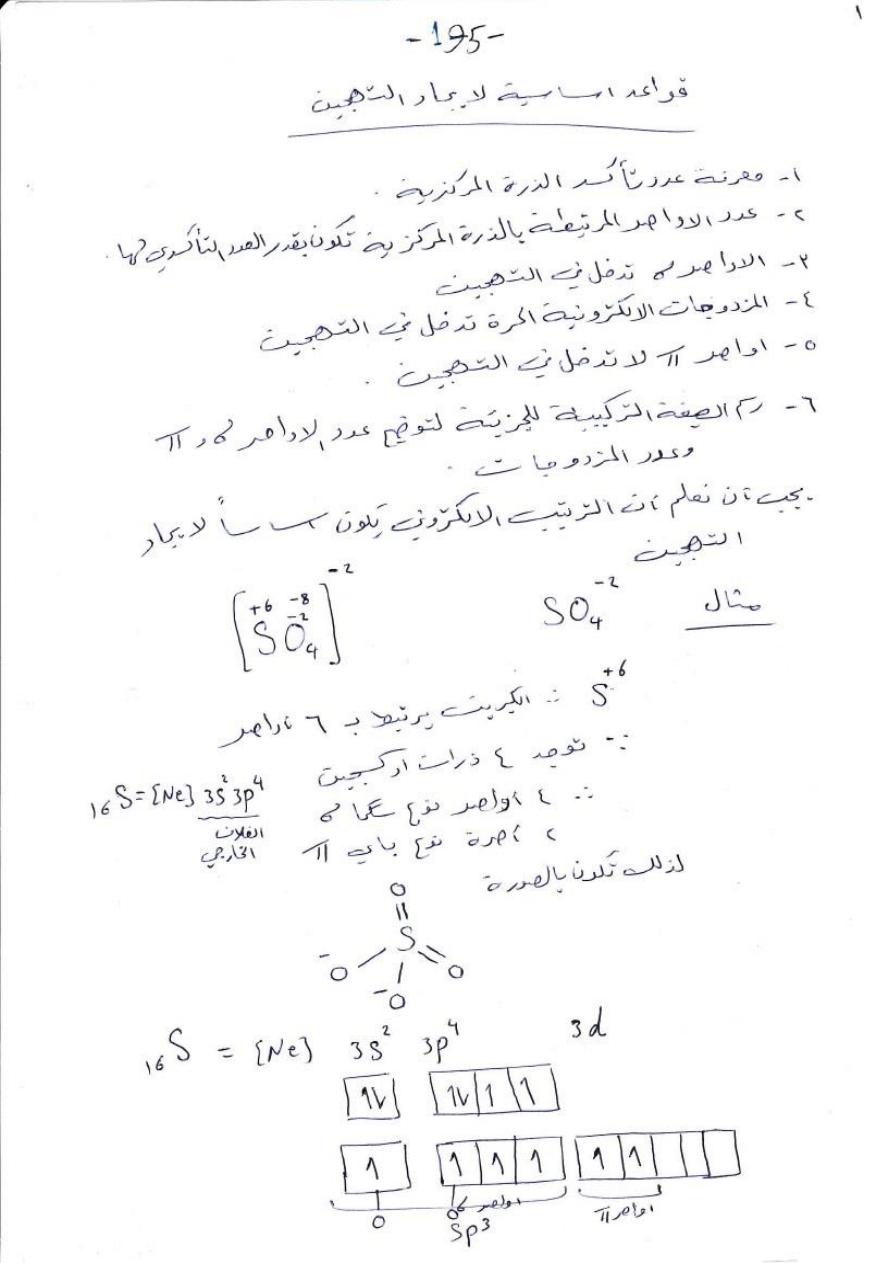 ١
-195-
قواعد اساسية لايجاد التهجين
١- معرفة عدد تأكسد الذرة المركزية .
٢- عدد الاواصر المرتبطة بالذرة المركزية تكون بقدر العدد التأكسدي لها .
٣- الاواصر σ تدخل في التهجين
٤- المزدوجات الالكترونية الحرة تدخل في التهجين
٥- اواصر π لا تدخل في التهجين .
٦- رسم الصيغة التركيبية للجزيئة لتوضيح عدد الاواصر σ و π
وعدد المزدوجات .
يجب أن نعلم أن الترتيب الالكتروني يكون اساساً لايجاد
التهجين
مثال SO₄⁻² [S⁺⁶ O₄⁻²]⁻² -8
S⁺⁶ ∴ الكبريت يرتبط بـ ٦ أواصر
∵ توجد ٤ ذرات اوكسجين
∴ ٤ أواصر نوع سكما σ
₁₆S = [Ne] 3s² 3p⁴
٢ أصرة نوع باي π
الغلاف
الخارجي
لذلك تكون بالصورة
O
||
S
⁻O O
⁻O
₁₆S = [Ne] 3s² 3p⁴ 3d
1L 1L 1 1
1 1 1 1 1 1
اواصر σ اواصر π
sp³